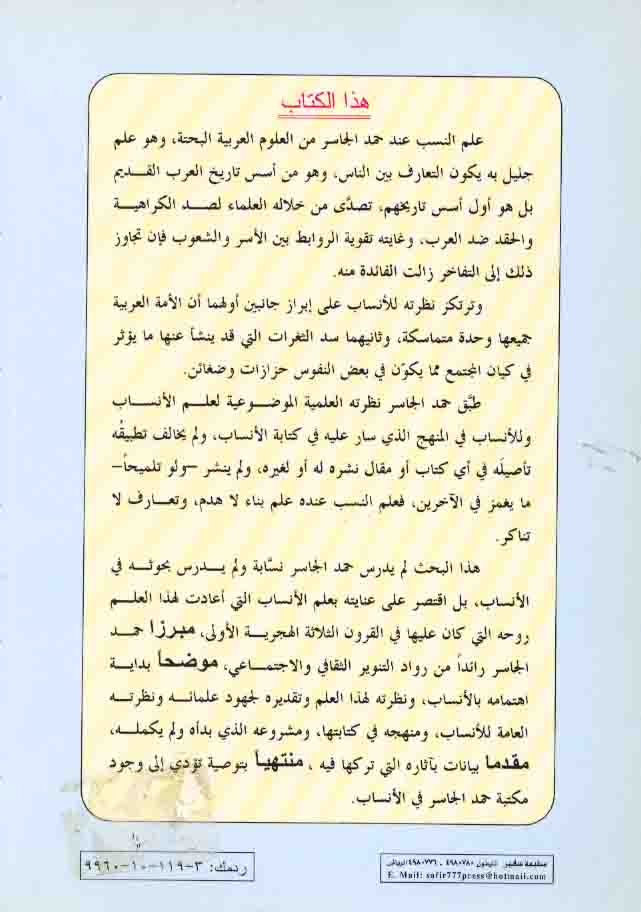 هذا الكتاب
علم النسب عند حمد الجاسر من العلوم العربية البحتة، وهو علم
جليل به يكون التعارف بين الناس، وهو من أسس تاريخ العرب القديم
بل هو أول أسس تاريخهم، تصدَّى من خلاله العلماء لصد الكراهية
والحقد ضد العرب، وغايته تقوية الروابط بين الأسر والشعوب فإن تجاوز
ذلك إلى التفاخر زالت الفائدة منه.
وترتكز نظرته للأنساب على إبراز جانبين أولهما أن الأمة العربية
جميعها وحدة متماسكة، وثانيهما سد الثغرات التي قد ينشأ عنها ما يؤثر
في كيان المجتمع مما يكوّن في بعض النفوس حزازات وضغائن.
طبَّق حمد الجاسر نظرته العلمية الموضوعية لعلم الأنساب
وللأنساب في المنهج الذي سار عليه في كتابة الأنساب، ولم يخالف تطبيقُه
تأصيلَه في أي كتاب أو مقال نشره له أو لغيره، ولم ينشر –ولو تلميحاً–
ما يغمز في الآخرين، فعلم النسب عنده علم بناء لا هدم، وتعارف لا
تناكر.
هذا البحث لم يدرس حمد الجاسر نسَّابة ولم يدرس بحوثه في
الأنساب، بل اقتصر على عنايته بعلم الأنساب التي أعادت لهذا العلم
روحه التي كان عليها في القرون الثلاثة الهجرية الأولى، مبرزا حمد
الجاسر رائداً من رواد التنوير الثقافي والاجتماعي، موضحاً بداية
اهتمامه بالأنساب، ونظرته لهذا العلم وتقديره لجهود علمائه ونظرته
العامة للأنساب، ومنهجه في كتابتها، ومشروعه الذي بدأه ولم يكمله،
مقدما بيانات بآثاره التي تركها فيه ، منتهياً بتوصية تؤدي إلى وجود
مكتبة حمد الجاسر في الأنساب.
ردمك: ٣-١١٩-١٠-٩٩٦٠
مطبعة سفير تليفون ٤٩٨٠٧٨٠ - ٤٩٨٠٧٧٦ الرياض
E. Mail: safir777press@hotmail.com